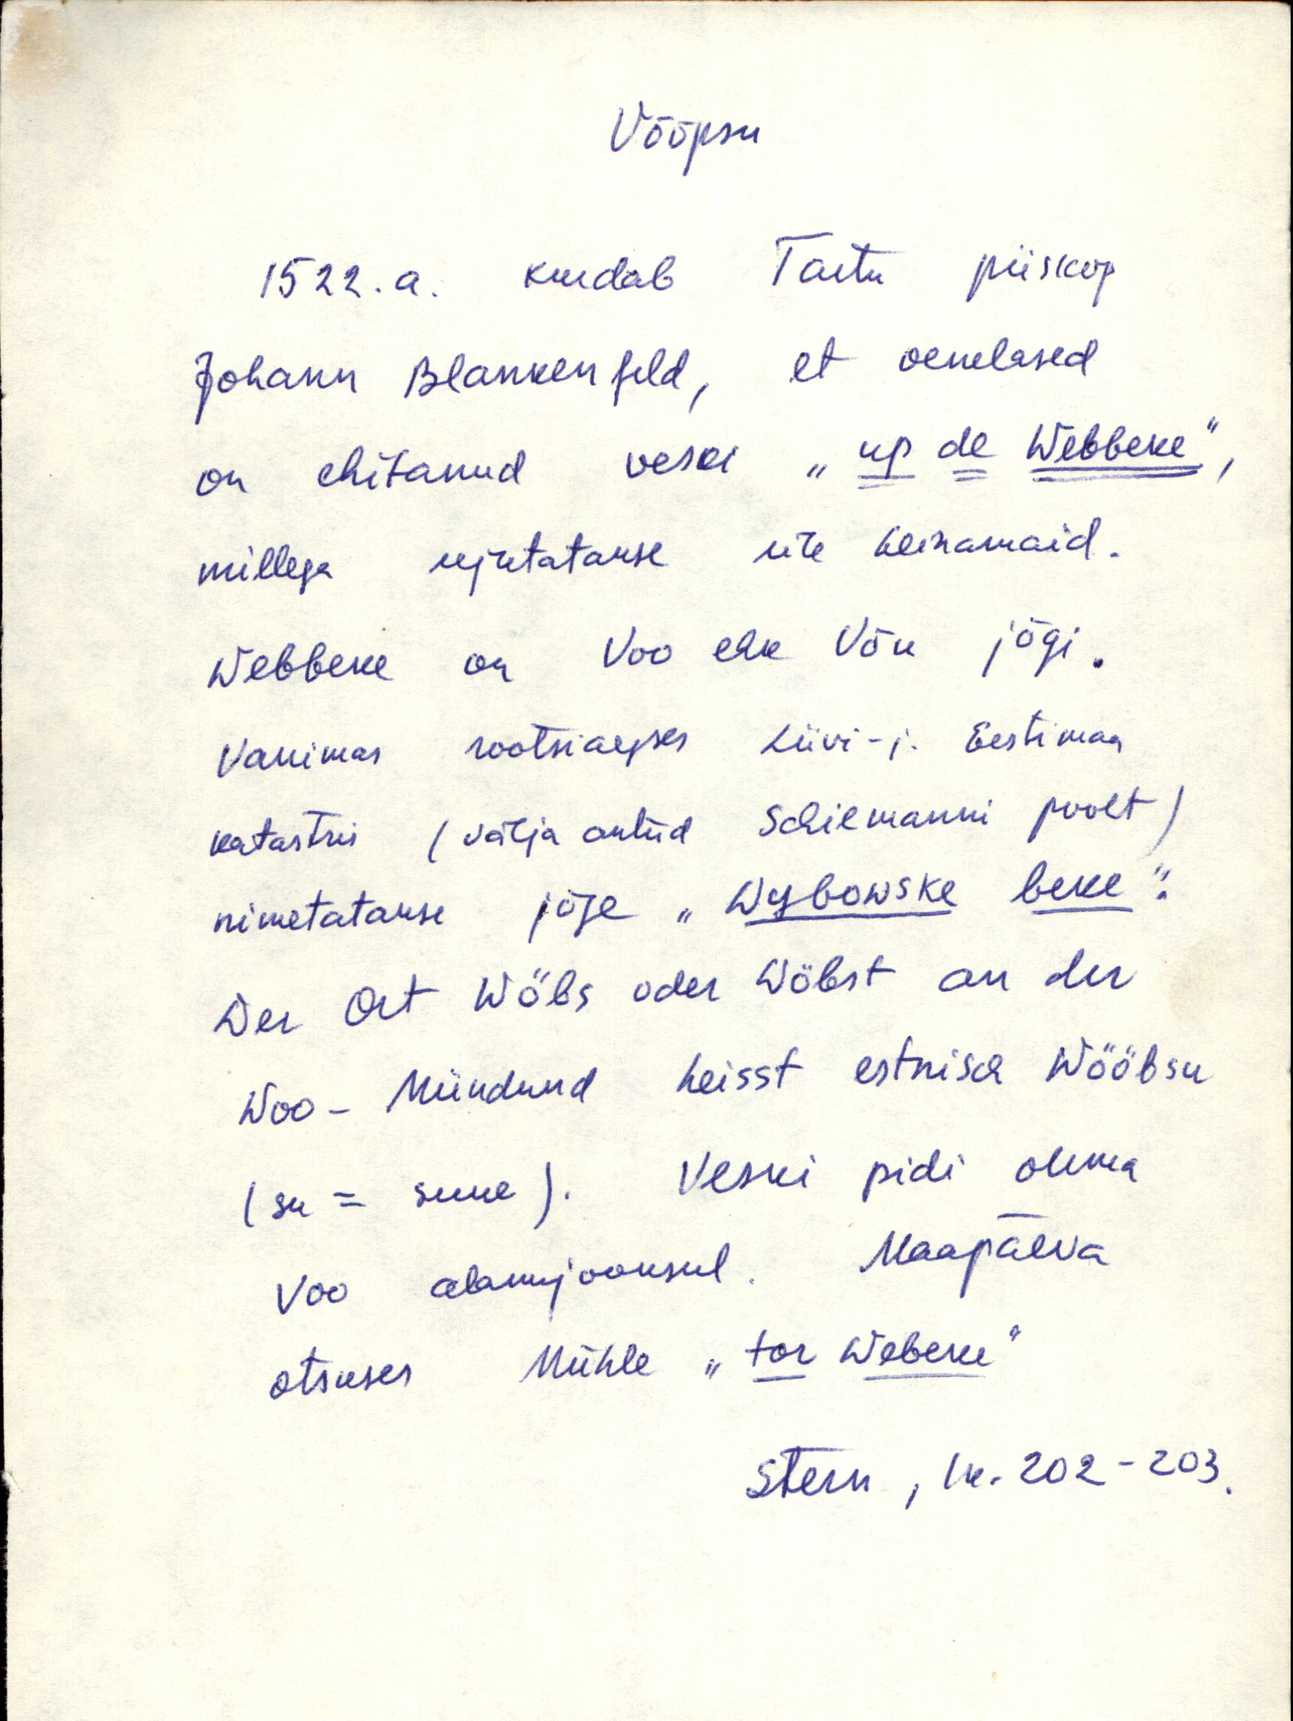 Võõpsu
1522.a. kurdab Tartu piiskop
Johann Blankenfeld, et venelased
on ehitanud veski „up de Webbeke“,
millega ujutatakse üle heinamaid.
Webbeke on Voo ehk Võu jõgi.
Vanimas rootsiaegses Liivi-j. Eestimaa
katastris (välja antud Schiemanni poolt)
nimetatakse jõge „Wybowske beke“.
Der Ort Wöbs oder Wöbst an der
Woo-Mündund heisst estnisch Wööbsu
(su = suue). Veski pidi olema
Voo alamjooksul. Maapäeva
otsuses Mühle „tor Webeke“
Stern, lk. 202-203.